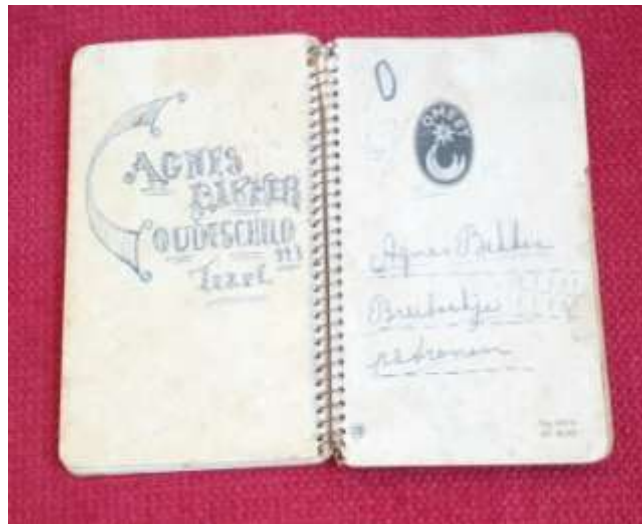 AGNES
BAKKER
OUDESCHILD
Texel
KOMEET
Agnes Bakker
Breiboekje
patronen